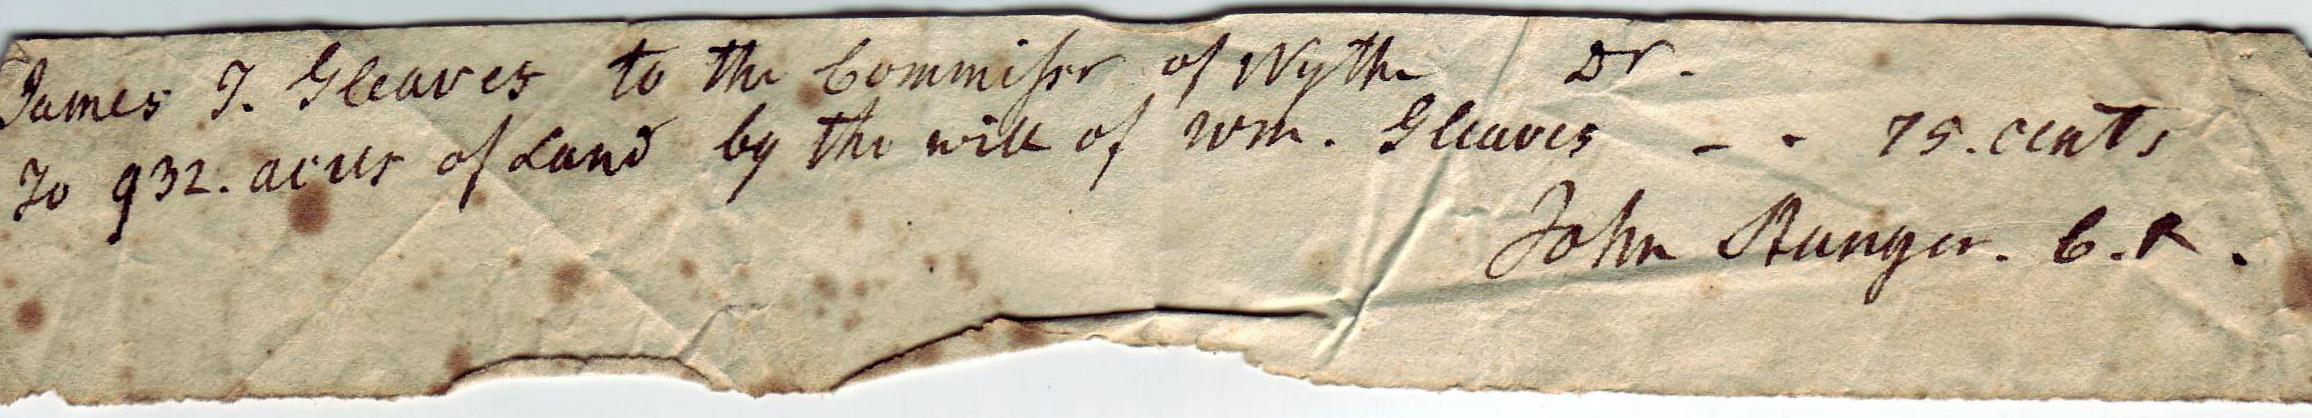 James T. Gleaves to the Commissr of Wythe Dr.
To 932. acres of Land by the will of Wm. Gleaves - - 75. cents
John C. R.